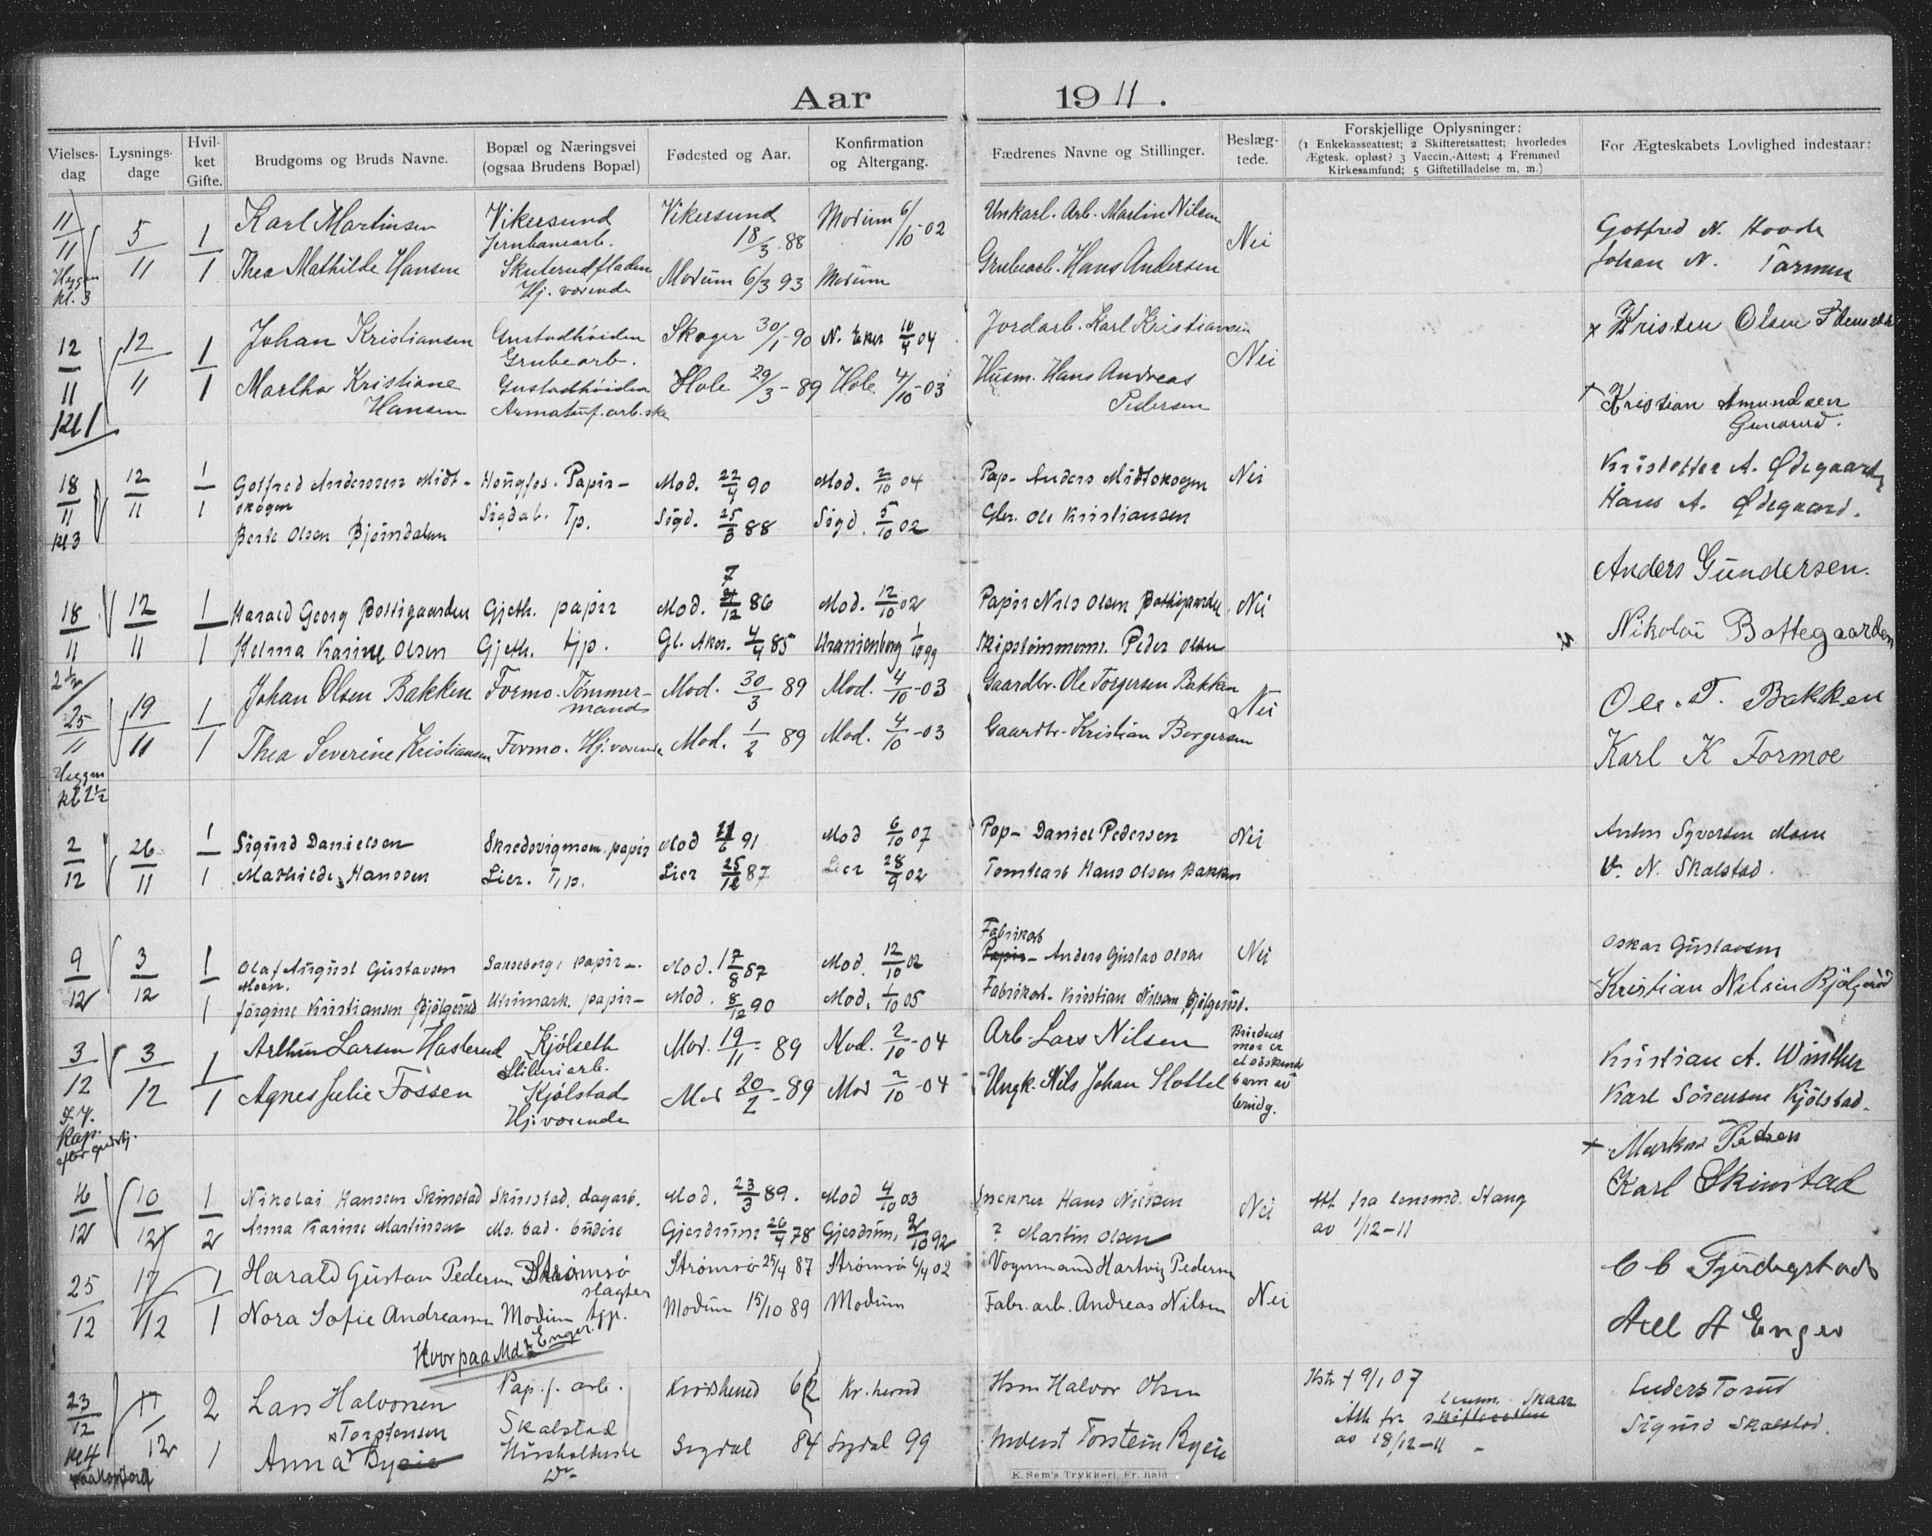 Aar 1911.
Vielses-dag | Lysnings-dage | Hvil-ket Gifte. | Brudgoms og Bruds Navne. | Bopæl og Næringsvei (ogsaa Brudens Bopæl) | Fødested og Aar. | Konfirmation og Altergang. | Fædrenes Navne og Stillinger. | Beslæg-tede. | Forskjellige Oplysninger: (1 Enkekasseattest; 2 Skifteretsattest; hvorledes Ægtesk. opløst? 3 Vaccin.-Attest; 4 Fremmed Kirkesamfund; 5 Giftetilladelse m. m.) | For Ægteskabets Lovlighed indestaar:
11/11 | 5/11 | 1 | Karl Martinsen | Vikersund Jernbanearb. | Vikersund 18/3 88 | Modum 6/10-02 | Unkarl. Arb. Martin Nilsen | Nei | Gotfred N. Hovde
Heggen kl. 3 | 1 | Thea Mathilde Hansen | Skuterudfladen Hj. værende | Modum 6/3 93 | Modum | Grubearb. Hans Andersen | Johan N.
12/11 | 12/11 | 1 | Johan Kristiansen | Gustadhøiden Grubearb. | Skoger 30/1-90 | N. Eker 10/4 04 | Jordarb. Karl Kristiansen | Nei | x Kristen Olsen
kl 1 | 1 | Martha Kristiane Hansen | Gustadhøiden | Hole 29/3-89 | Hole 4/10-03 | Husm. Hans Andreas Pedersen | Kristian Amundsen
18/11 | 12/11 | 1 | Gotfred Anderssen Midt-skogen | Hougfos. Papir- | Mod. 22/4 90 | Mod. 2/10 04 | Pap- Anders Midtskogen | Nei | Kristoffer A. Ødegaarden
kl 3 | 1 | Berte Olsen Bjørndalen | Sigdal. Tp. | Sigd. 25/3 88 | Sigd. 5/10 02 | Gbr. Ole Kristiansen | Hans A. Ødegaard.
18/11 | 12/11 | 1 | Harald Georg Bottegaarden | Gjeth. papir | Mod. 7/12 86 | Mod. 12/10 02 | Papir Nils Olsen Bottegaarden | Nei | Anders Gundersen.
1 | Helma Karine Olsen | Gjeth. tjp. | Gl. Aker. 4/4 85 | Uranienborg 1/10 99 | Skipstømmerm. Peder Olsen | Nikolai Bottegaarden
25/11 | 19/11 | 1 | Johan Olsen Bakken | Formo. Tømmer-mand | Mod. 30/3 89 | Mod. 4/10-03 | Gaardbr. Ole Torgersen Bakken | Nei | Ole. T. Bakken
Heggen kl 2½ | 1 | Thea Severine Kristiansen | Formo. Hj. værende | Mod. 1/2 89 | Mod. 4/10-03 | Gaardbr. Kristian Borgersen | Karl K Formoe
2/12 | 26/11 | 1 | Sigurd Danielsen | Skredsvigmoen papir | Mod 6 91 | Mod 6/10 07 | Pap- Daniel Pedersen | Nei | Anton Syversen Moen
1 | Mathilde Hanssen | Lier. Tjp. | Lier 25/12 87 | Lier 28/9 02 | Tomtearb Hans Olsen Bakken | N. Skalstad.
9/12 | 3/12 | 1 | Olaf August Gustavsen Moen. | papir-. | Mod. 17/8 87 | Mod. 12/10 02 | Fabrikarb Anders Gustav Olsen | Nei | Oskar Gustavsen
1 | Jørgine Kristiansen Bjølgerud | Utnmark. papir- | Mod. 8/12 90 | Mod. 1/10 05 | Fabrikarb. Kristian Nilsen Bjølgerud. | Kristian Nilsen Bjølgerud
3/12 | 3/12 | 1 | Arthur Larsen Hasterud | Kjølseth Sliberiarb. | Mod. 19/11-89 | Mod. 2/10-04 | Arb. Lars Nilsen | Brudens mor er | Kristian A. Winther
1 | Agnes Julie Fossen | Kjølstad Hj. værende | Mod 20/2-89 | Mod 2/10-04 | Ungk. Nils Johan Slottet | Karl Sørensen Kjølstad.
16/12 | 10/12 | 1 | Nikolai Hanssen Skinstad | Skinstad. dagarb. | Mod. 23/3 89. | Mod 4/10 03 | Snekker Hans Nielsen | Nei | Att. fra lensmd. Stang av 1/12-11 | x Markus Pedersen Karl Skinstad
2 | Anna Karine Martinsen | Mo. bad. budeie | Gjerdrum 26/4 78 | Gjerdrum 2/10 92 | ? Martin Olsen
25/12 | 17/12 | 1 | Harald Gustav Pedersen | Strømsø slagter | Strømsø 25/4 87 | Strømsø 6/4 02 | Vognmand Hartvig Pedersen | Nei
1 | Nora Sofie Andreasen | Modum tjp. | Modum 15/10 89 | Modum | Fabr. arb. Andreas Nilsen | Axel A Enger
Hvorpaa Md Enger.
23/12 | 17/12 | 2 | Lars Halvorsen | Pap. f. arb. Skalstad | Krødsherred 62 | Kr. herred | Hsm Halvor Olsen | Hstr + 9/1 07 | Anders Torud
kl 4 | 1 | Anna Torstensen Byeie | Husholderske | Sigdal 84 | Sigdal 99 | Inderst Torstein Byeie | Att. fr. lensm. Skaar av 18/12-11 | Sigurd Skalstad.
E. Sem's Trykkeri, Fr.hald